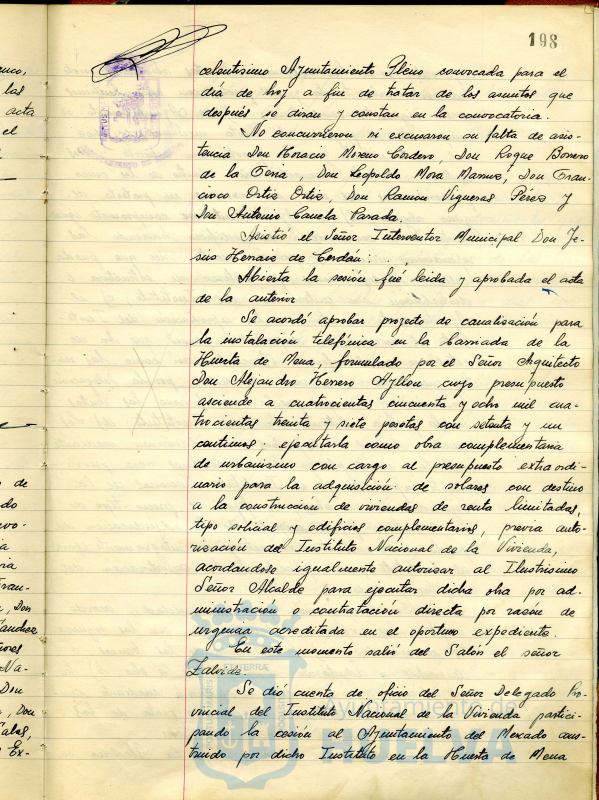 198
celentisimo Ayuntamiento Pleno convocada para el
dia de hoy a fin de tratar de los asuntos que
después se diran y constan en la convocatoria.
No concurrieron ni excusaron su falta de asis-
tencia Don Horacio Moreno Cordero, Don Roque Borrero
de la Don Leopoldo Mora Don Fran-
cisco Ortiz Ortiz, Don Ramon Vigueras Pérez y
Don Antonio Canela Parada.
Asistió el Señor Interventor Municipal Don Je-
sus de Cerdán:
Abierta la sesión fué leida y aprobada el acta
de la anterior
Se acordó aprobar proyecto de canalisación para
la instalación telefónica en la barriada de la
Huerta de Mena, formulado por el Señor Arquitecto
Don Alejandro Herrero Ayllón cuyo presupuesto
asciende a cuatrocientas cincuenta y ocho mil cua-
trocientas treinta y siete pesetas con setenta y un
centimos; ejecutarla como obra complementaria
de urbanismo con cargo al presupuesto extraordi-
nario para la adquisición de solares con destino
a la construcción de viviendas de renta limitadas,
tipo solicial y edificios complementarios, previa auto-
rización del Instituto Nacional de la Vivienda,
acordandose igualmente autorizar al Ilustrisimo
Señor Alcalde para ejecutar dicha otra por ad-
ministracion o contratación directa por razón de
urgencia acreditada en el oportuno expediente.
En este momento salió del Salón el señor
Zalvide.
Se dió cuenta de oficio del Señor Delegado Pro-
vincial del Instituto Nacional de la Vivienda partici-
pando la cesión al Ayuntamiento del Mercado cons-
truido por dicho Instituto en la Huerta de Mena
las
acta
el
de
Don
Na-
Don
Don
Ex-
Ayuntamiento de
HUELVA